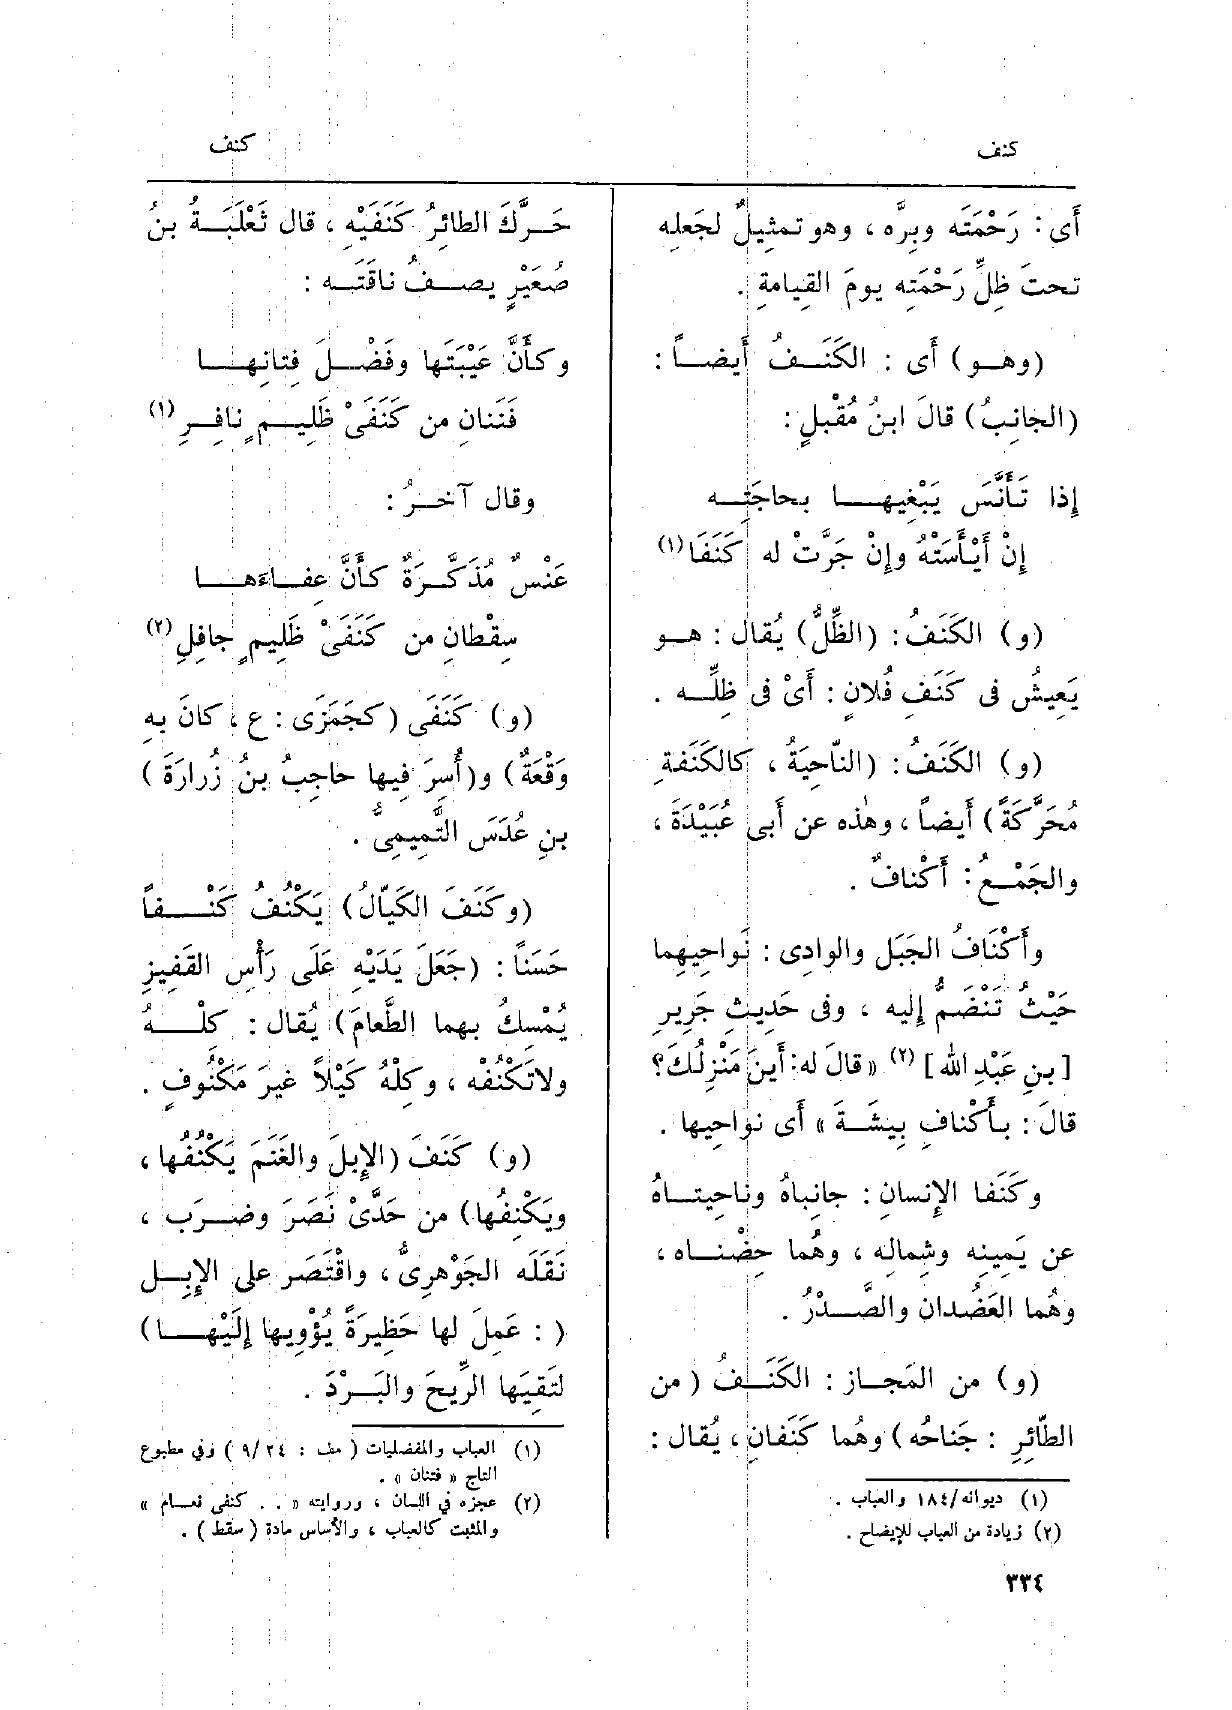 كنف
كنف
أَى : رَحْمَتَه وبِرَّه ، وهو تمثيلٌ لجَعلِه
تحتَ ظِلِّ رَحْمَتِه يومَ القِيامةِ .
(وهــو) أَى : الكَنَــفُ أَيضــاً :
(الجانِبُ) قالَ ابنُ مُقْبِلٍ :
إِذا تَأَنَّسَ يَبْغِيهــا بحاجَتِــه
إِنْ أَيْأَسَتْهُ وإِنْ جَرَّتْ له كَنَفَا (١)
(و) الكَنَفُ : (الظِّلُّ) يُقال : هــو
يَعِيشُ فى كَنَفِ فُلانٍ : أَىْ فى ظِلِّــه .
(و) الكَنَفُ : (النّاحِيَةُ ، كالكَنَفةِ
مُحَرَّكَةً) أَيضاً ، وهٰذه عن أَبى عُبَيْدَةَ ،
والجَمْــعُ : أَكْنافٌ .
وأَكْنَافُ الجَبَلِ والوادِى : نَواحِيهِما
حَيْثُ تَنْضَمُّ إِليه ، وفى حَدِيثِ جَرِيرِ
[بنِ عَبْدِ الله] (٢) « قالَ له : أَينَ مَنْزِلُكَ ؟
قالَ : بــأَكْنافِ بِيشَــةَ » أَى نواحِيها .
وكَنَفا الإِنسانِ : جانِباهُ وناحِيتــاهُ
عن يَمِينِه وشِمالِه ، وهُما حِضْنــاه ،
وهُما العَضُدان والصَّــدْرُ .
(و) من المَجــازِ : الكَنَــفُ ( من
الطّائِرِ : جَناحُه ) وهُما كَنَفانِ ، يُقال :
(١) ديوانه/١٨٤ والعباب .
(٢) زيادة من العباب للإيضاح .
٣٣٤
حَــرَّكَ الطائِرُ كَنَفَيْهِ ، قال ثَعْلَبَــةُ بنُ
صُعَيْرٍ يصــفُ ناقَتَــه :
وكأَنَّ عَيْبَتَها وفَضْــلَ فِتانِهــا
فَنَنانِ من كَنَفَىْ ظَلِيــمٍ نافِــرِ (١)
وقال آخــرُ :
عَنْسٌ مُذَكَّــرَةٌ كأَنَّ عِفــاءَهــا
سِقْطانِ من كَنَفَىْ ظَلِيمٍ جافِلِ (٢)
(و) كَنَفَى ( كجَمَزَى : ع ، كانَ بِهِ
وَقْعَةٌ) و(أُسِرَ فِيها حاجِبُ بنُ زُرارَةَ )
بنِ عُدَسَ التَّمِيمِىُّ .
(وكَنَفَ الكَيّالُ) يَكْنُفُ كَنْــفاً
حَسَناً : (جَعَلَ يَدَيْهِ عَلَى رَأْسِ القَفِيزِ
يُمْسِكُ بهما الطَّعامَ) يُقال : كِلْــهُ
ولاتَكْنُفْه ، وكِلْهُ كَيْلاً غيرَ مَكْنُوفٍ .
(و) كَنَفَ (الإِبِلَ والغَنَمَ يَكْنُفُها ،
ويَكْنِفُها) من حَدَّىْ نَصَرَ وضــرَب ،
نَقَلَه الجَوْهرِىُّ ، واقْتَصَر على الإِبِــل
( : عَمِلَ لها حَظِيرَةً يُؤْوِيها إِلَيْهــا )
لتَقِيَها الرِّيحَ والبَــرْدَ .
(١) العباب والمفضليات ( مف : ٩/٢٤ ) وفي مطبوع
التاج « فتنان » .
(٢) عجزه في اللسان ، وروايته « . . كنفى نعــام »
والمثبت كالعباب ، والأساس مادة ( سقط ) .